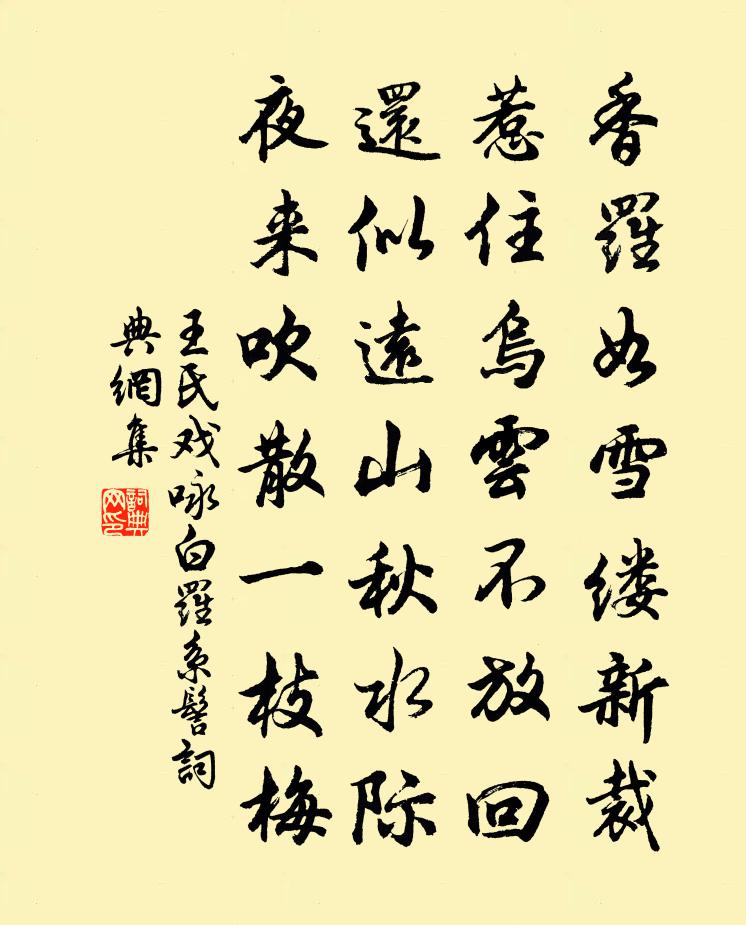 香羅如雪缕新裁
惹住烏雲不放回
還似遠山秋水际
夜来吹散一枝梅
王氏戏咏白羅系髻詞
典網集
詞典网印